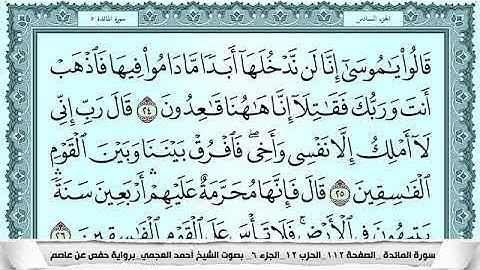 الجزء السادس سورة المائدة ٥
قَالُوا۟ يَـٰمُوسَىٰٓ إِنَّا لَن نَّدْخُلَهَآ أَبَدًا مَّا دَامُوا۟ فِيهَا فَٱذْهَبْ
أَنتَ وَرَبُّكَ فَقَـٰتِلَآ إِنَّا هَـٰهُنَا قَـٰعِدُونَ ٢٤ قَالَ رَبِّ إِنِّى
لَآ أَمْلِكُ إِلَّا نَفْسِى وَأَخِى ۖ فَٱفْرُقْ بَيْنَنَا وَبَيْنَ ٱلْقَوْمِ
ٱلْفَـٰسِقِينَ ٢٥ قَالَ فَإِنَّهَا مُحَرَّمَةٌ عَلَيْهِمْ ۛ أَرْبَعِينَ سَنَةً ۛ
يَتِيهُونَ فِى ٱلْأَرْضِ ۚ فَلَا تَأْسَ عَلَى ٱلْقَوْمِ ٱلْفَـٰسِقِينَ ٢٦
سورة المائدة _ الصفحة ١١٢_ الحزب ١٢_ الجزء ٦_ بصوت الشيخ أحمد العجمي_ برواية حفص عن عاصم